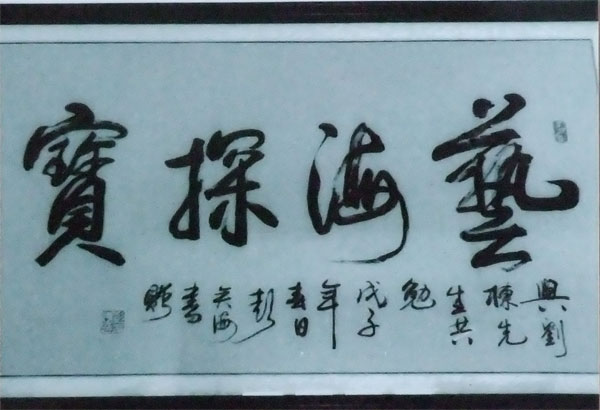 藝海探寶
與劉
先
生共
勉
戊子
年
春日
彭
海
書
贈